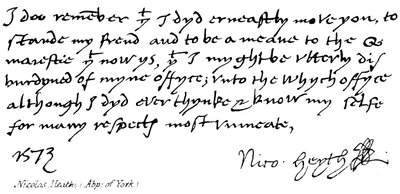 I doo remember yt I dyd ernestly move you, to
stande my frend and to be a meane to the Qs
maiestie yt now ys, yt I myght be vtterly dis
burdyned of myne offyce; into the whych offyce
although I dyd ever thynke & know my selfe
for many respects most vnmeate,
1573 Nico. Heyth
Nicolas Heath, (Abp: of York)